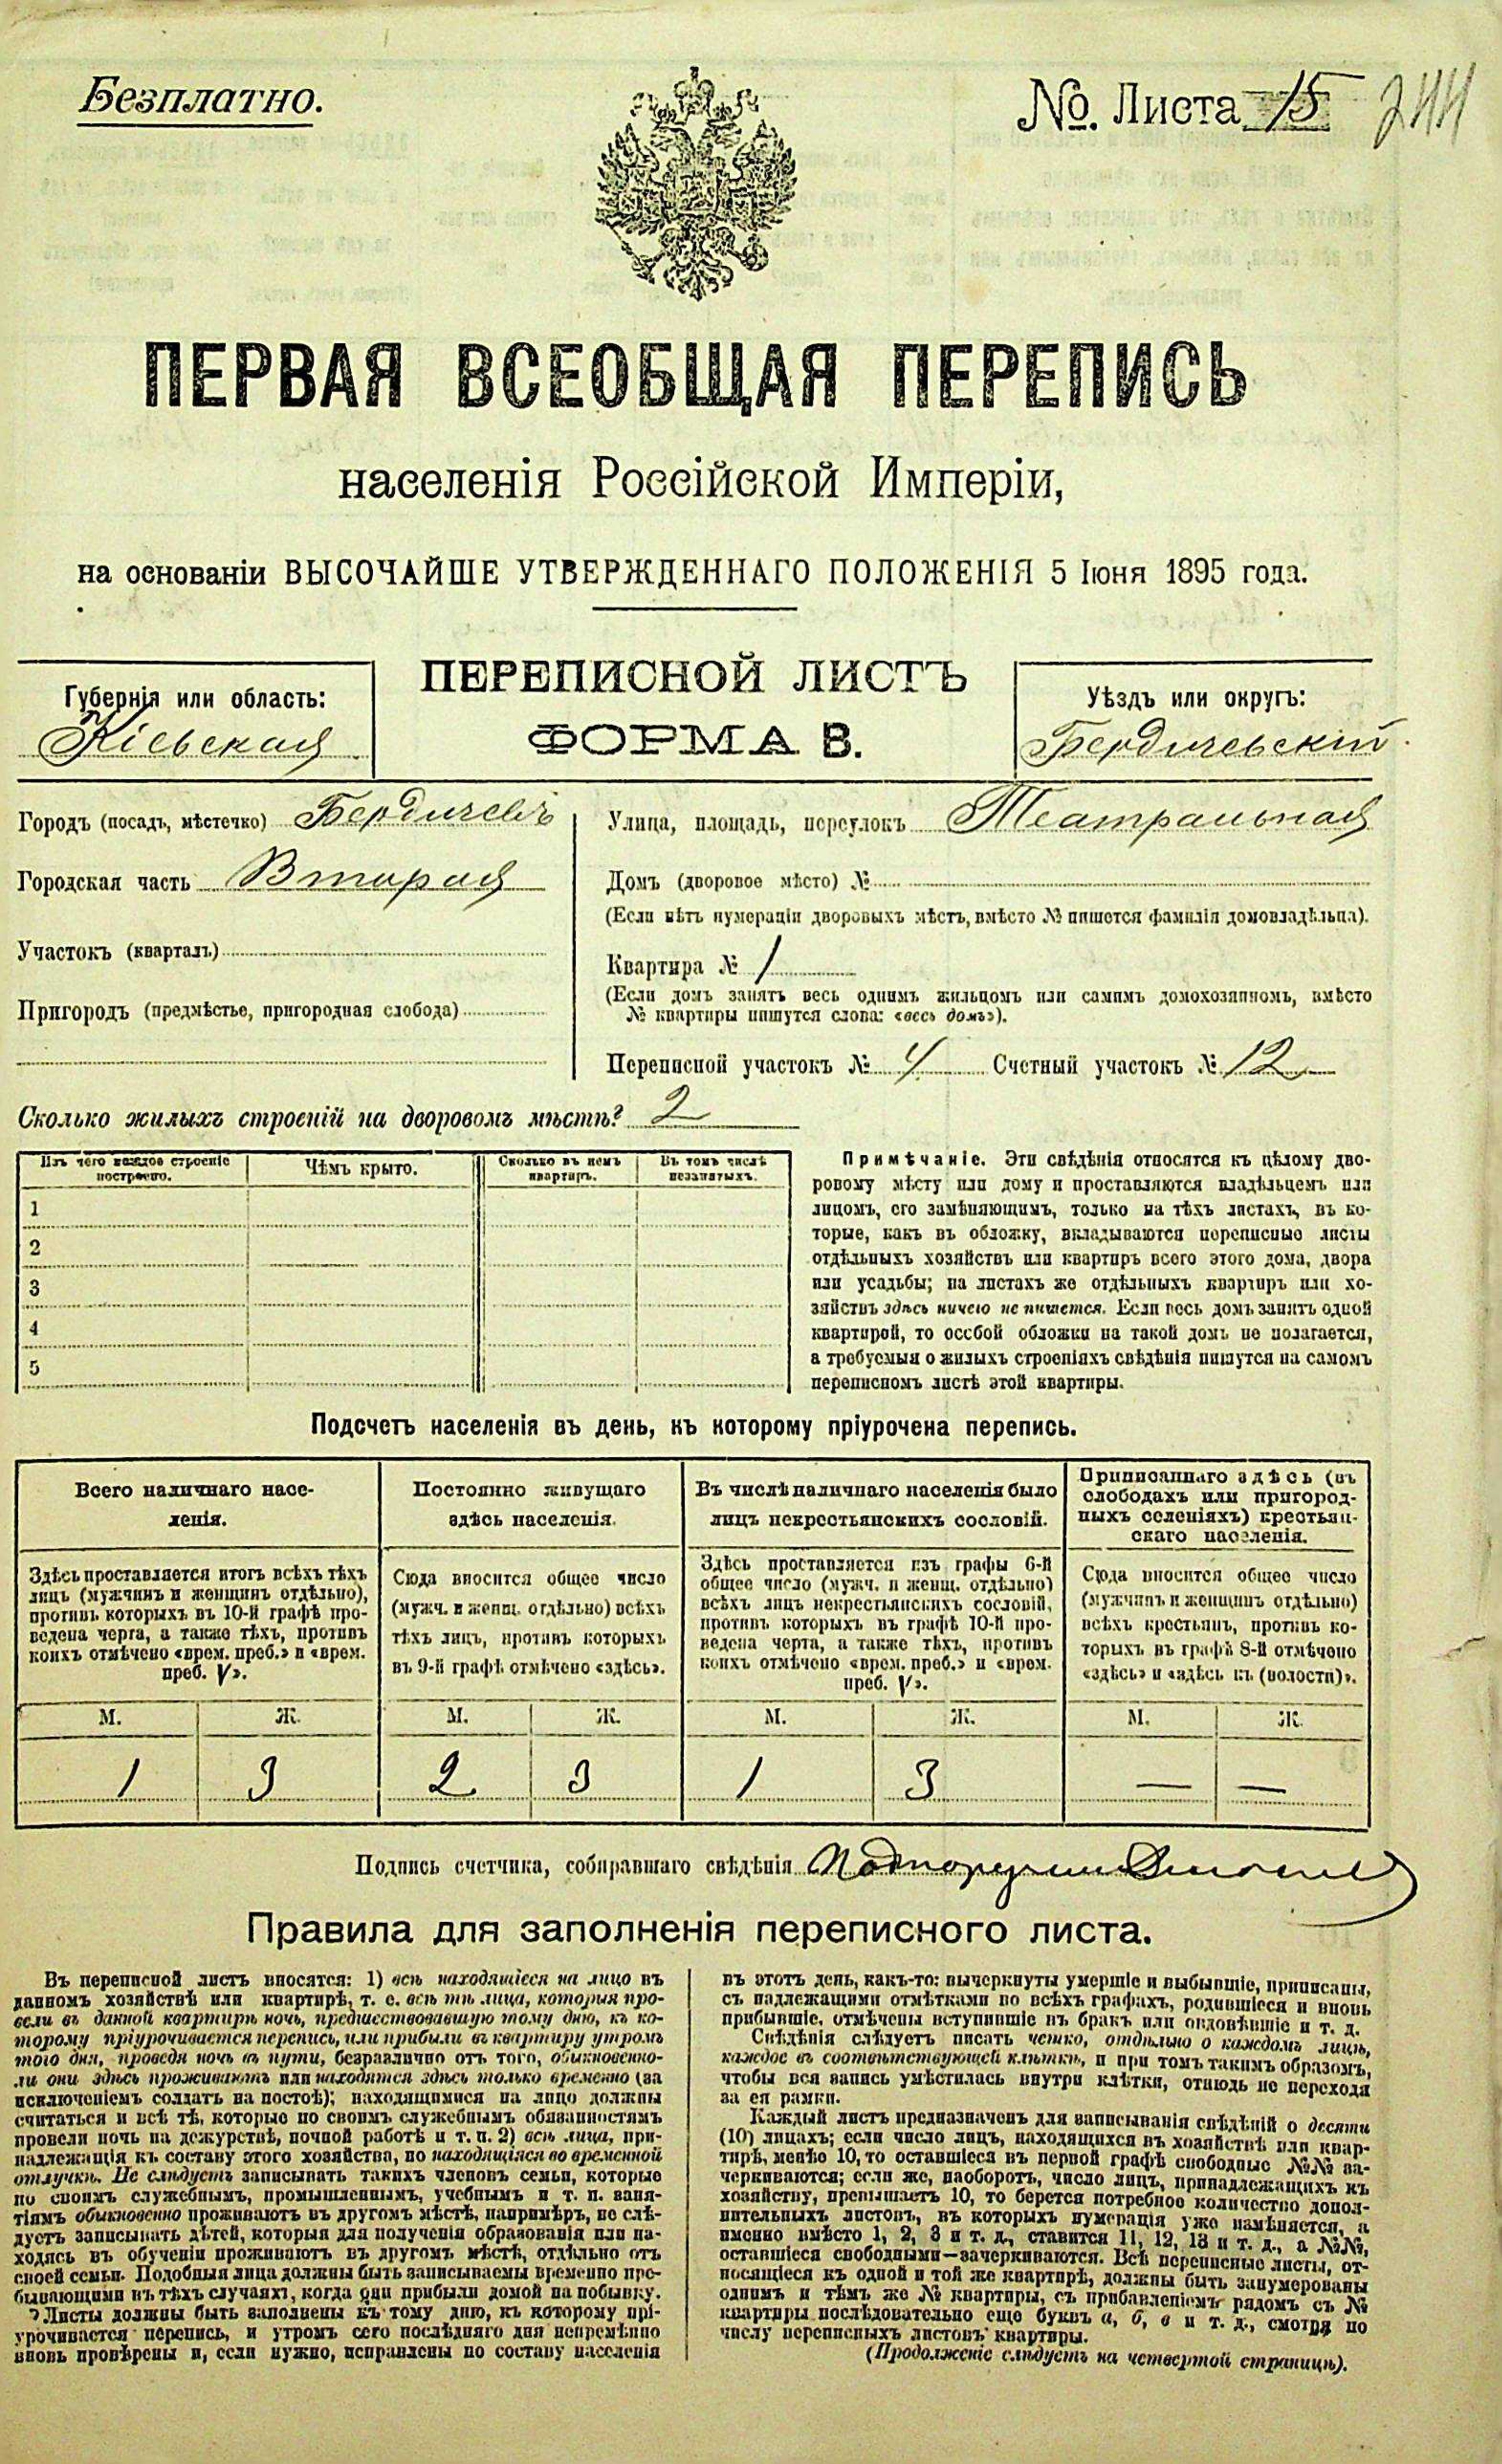 Безплатно.
№. Листа 15 244
ПЕРВАЯ ВСЕОБЩАЯ ПЕРЕПИСЬ
населенія Россійской Имперіи,
на основаніи ВЫСОЧАЙШЕ УТВЕРЖДЕННАГО ПОЛОЖЕНІЯ 5 Іюня 1895 года.
ПЕРЕПИСНОЙ ЛИСТЪ
ФОРМА В.
Губернія или область:
Кіевская
Уѣздъ или округъ:
Бердичевскій
Городъ (посадъ, мѣстечко) Бердичевъ
Городская часть Вторая
Участокъ (кварталъ)
Пригородъ (предмѣстье, пригородная слобода)
Улица, площадь, переулокъ Театральная
Домъ (дворовое мѣсто) №
(Если нѣтъ нумераціи дворовыхъ мѣстъ, вмѣсто № пишется фамилія домовладѣльца).
Квартира № 1
(Если домъ занятъ весь однимъ жильцомъ или самимъ домохозяиномъ, вмѣсто
№ квартиры пишутся слова: «весь домъ»).
Переписной участокъ № 4 Счетный участокъ № 12
Сколько жилыхъ строеній на дворовомъ мѣстѣ? 2
Изъ чего каждое строеніе
построено.
Чѣмъ крыто.
Сколько въ немъ
квартиръ.
Въ томъ числѣ
незанятыхъ.
1
2
3
4
5
Примѣчаніе. Эти свѣдѣнія относятся къ цѣлому дво-
ровому мѣсту или дому и проставляются владѣльцемъ или
лицомъ, его замѣняющимъ, только на тѣхъ листахъ, въ ко-
торые, какъ въ обложку, вкладываются переписные листы
отдѣльныхъ хозяйствъ или квартиръ всего этого дома, двора
или усадьбы; на листахъ же отдѣльныхъ квартиръ или хо-
зяйствъ здѣсь ничего не пишется. Если весь домъ занятъ одной
квартирой, то особой обложки на такой домъ не полагается,
а требуемыя о жилыхъ строеніяхъ свѣдѣнія пишутся на самомъ
переписномъ листѣ этой квартиры.
Подсчетъ населенія въ день, къ которому пріурочена перепись.
Всего наличнаго насе-
ленія.
Постоянно живущаго
здѣсь населенія.
Въ числѣ наличнаго населенія было
лицъ некрестьянскихъ сословій.
Приписаннаго здѣсь (въ
слободахъ или пригород-
ныхъ селеніяхъ) крестьян-
скаго населенія.
Здѣсь проставляется итогъ всѣхъ тѣхъ
лицъ (мужчинъ и женщинъ отдѣльно),
противъ которыхъ въ 10-й графѣ про-
ведена черта, а также тѣхъ, противъ
коихъ отмѣчено «врем. преб.» и «врем.
преб. V».
Сюда вносится общее число
(мужч. и женщ. отдѣльно) всѣхъ
тѣхъ лицъ, противъ которыхъ
въ 9-й графѣ отмѣчено «здѣсь».
Здѣсь проставляется изъ графы 6-й
общее число (мужч. и женщ. отдѣльно)
всѣхъ лицъ некрестьянскихъ сословій,
противъ которыхъ въ графѣ 10-й про-
ведена черта, а также тѣхъ, противъ
коихъ отмѣчено «врем. преб.» и «врем.
преб. V».
Сюда вносится общее число
(мужчинъ и женщинъ отдѣльно)
всѣхъ крестьянъ, противъ ко-
торыхъ въ графѣ 8-й отмѣчено
«здѣсь» и «здѣсь къ (волости)».
М. Ж. М. Ж. М. Ж. М. Ж.
1 3 2 3 1 3 — —
Подпись счетчика, собиравшаго свѣдѣнія
Правила для заполненія переписного листа.
Въ переписной листъ вносятся: 1) всѣ находящіеся на лицо въ
данномъ хозяйствѣ или квартирѣ, т. е. всѣ тѣ лица, которыя про-
вели въ данной квартирѣ ночь, предшествовавшую тому дню, къ ко-
торому пріурочивается перепись, или прибыли въ квартиру утромъ
того дня, проведя ночь въ пути, безразлично отъ того, обыкновенно-
ли они здѣсь проживаютъ или находятся здѣсь только временно (за
исключеніемъ солдатъ на постоѣ); находящимися на лицо должны
считаться и всѣ тѣ, которые по своимъ служебнымъ обязанностямъ
провели ночь на дежурствѣ, ночной работѣ и т. п. 2) всѣ лица, при-
надлежащія къ составу этого хозяйства, но находящіяся во временной
отлучкѣ. Не слѣдуетъ записывать такихъ членовъ семьи, которые
по своимъ служебнымъ, промышленнымъ, учебнымъ и т. п. заня-
тіямъ обыкновенно проживаютъ въ другомъ мѣстѣ, напримѣръ, не слѣ-
дуетъ записывать дѣтей, которыя для полученія образованія или на-
ходясь въ обученіи проживаютъ въ другомъ мѣстѣ, отдѣльно отъ
своей семьи. Подобныя лица должны быть записываемы временно пре-
бывающими въ тѣхъ случаяхъ, когда они прибыли домой на побывку.
Листы должны быть заполнены къ тому дню, къ которому прі-
урочивается перепись, и утромъ сего послѣдняго дня непремѣнно
вновь провѣрены и, если нужно, исправлены по составу населенія
въ этотъ день, какъ-то: вычеркнуты умершіе и выбывшіе, приписаны,
съ надлежащими отмѣтками во всѣхъ графахъ, родившіеся и вновь
прибывшіе, отмѣчены вступившіе въ бракъ или овдовѣвшіе и т. д.
Свѣдѣнія слѣдуетъ писать четко, отдѣльно о каждомъ лицѣ,
каждое въ соотвѣтствующей клѣткѣ, и при томъ такимъ образомъ,
чтобы вся запись умѣстилась внутри клѣтки, отнюдь не переходя
за ея рамки.
Каждый листъ предназначенъ для записыванія свѣдѣній о десяти
(10) лицахъ; если число лицъ, находящихся въ хозяйствѣ или квар-
тирѣ, менѣе 10, то оставшіеся въ первой графѣ свободные №№ за-
черкиваются; если же, наоборотъ, число лицъ, принадлежащихъ къ
хозяйству, превышаетъ 10, то берется потребное количество допол-
нительныхъ листовъ, въ которыхъ нумерація уже измѣняется, а
именно вмѣсто 1, 2, 3 и т. д., ставится 11, 12, 13 и т. д., а №№,
оставшіеся свободными—зачеркиваются. Всѣ переписные листы, от-
носящіеся къ одной и той же квартирѣ, должны быть занумерованы
однимъ и тѣмъ же № квартиры, съ прибавленіемъ рядомъ съ №
квартиры послѣдовательно еще буквъ а, б, в и т. д., смотря по
числу переписныхъ листовъ квартиры.
(Продолженіе слѣдуетъ на четвертой страницѣ).